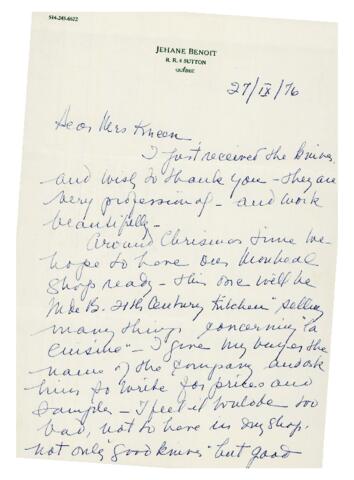 514-243-6622
JEHANE BENOIT
R. R. 4 SUTTON
QUÉBEC
27/IX/76
Dear Mrs Kneen
I just received the knives
and wish to thank you - they are
very professional - and work
beautifully -
Around Chrismas time we
hope to have our Montreal
Shop ready - this one will be
Mde B. 21th Century Kitchen" selling
many things concerning "la
cuisine" - I give my buyer the
name of the company and ask
him to write for prices and
samples - I feel it would be too
bad, not to have in my shop.
not only "good knives" but good